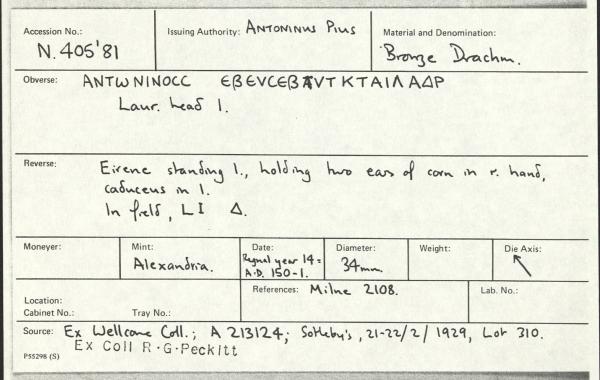 Accession No.: Issuing Authority: Antoninus Pius Material and Denomination:
N.405'81 Bronze Drachm.
Obverse: ANTωNINOCC ЄβЄVCЄβAVTKTAIΛAΔP
Laur. head l.
Reverse: Eirene standing l., holding two ears of corn in r. hand,
caduceus in l.
In field, LI Δ.
Moneyer: Mint: Date: Diameter: Weight: Die Axis:
Alexandria. Regnal year 14 = 34mm.
A.D. 150-1.
Location: References: Milne 2108. Lab. No.:
Cabinet No.: Tray No.:
Source: Ex Wellcome Coll.; A 213124; Sotheby's, 21-22/2/1929, Lot 310.
Ex Coll R.G.Peckitt
P55298 (S)